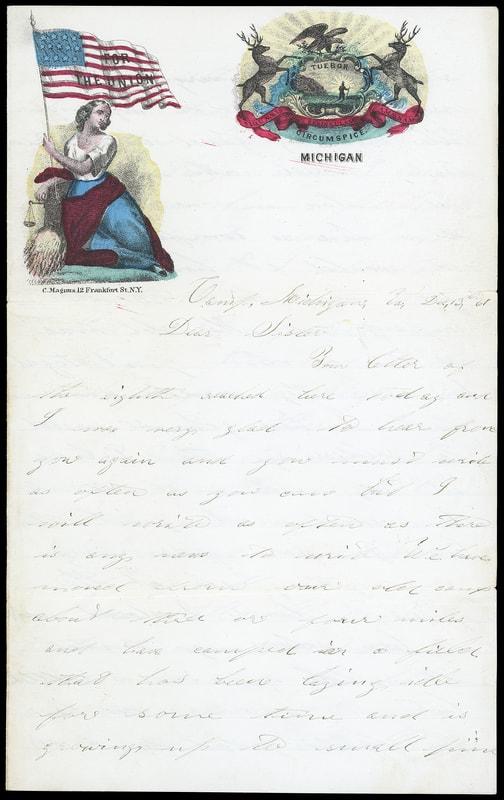 FOR
THE UNION
TUEBOR
CIRCUMSPICE
MICHIGAN
C. Magnus 12 Frankfort St. N.Y.
Camp Michigan Va Dec 13th 61
Dear Sister
Your letter of
the eighth reached here today and
I was very glad to hear from
you again and you must write
as often as you can but I
will write as often as there
is any news to write We have
moved from our old camp
about three or four miles
and have camped in a field
that has been lying idle
for some time and is
growing up to small pine